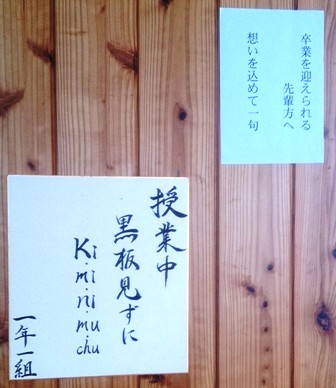 卒業を迎えられる
先輩方へ
想いを込めて一句
授業中
黒板見ずに
Ki・mi・ni・mu・chu
一年一組